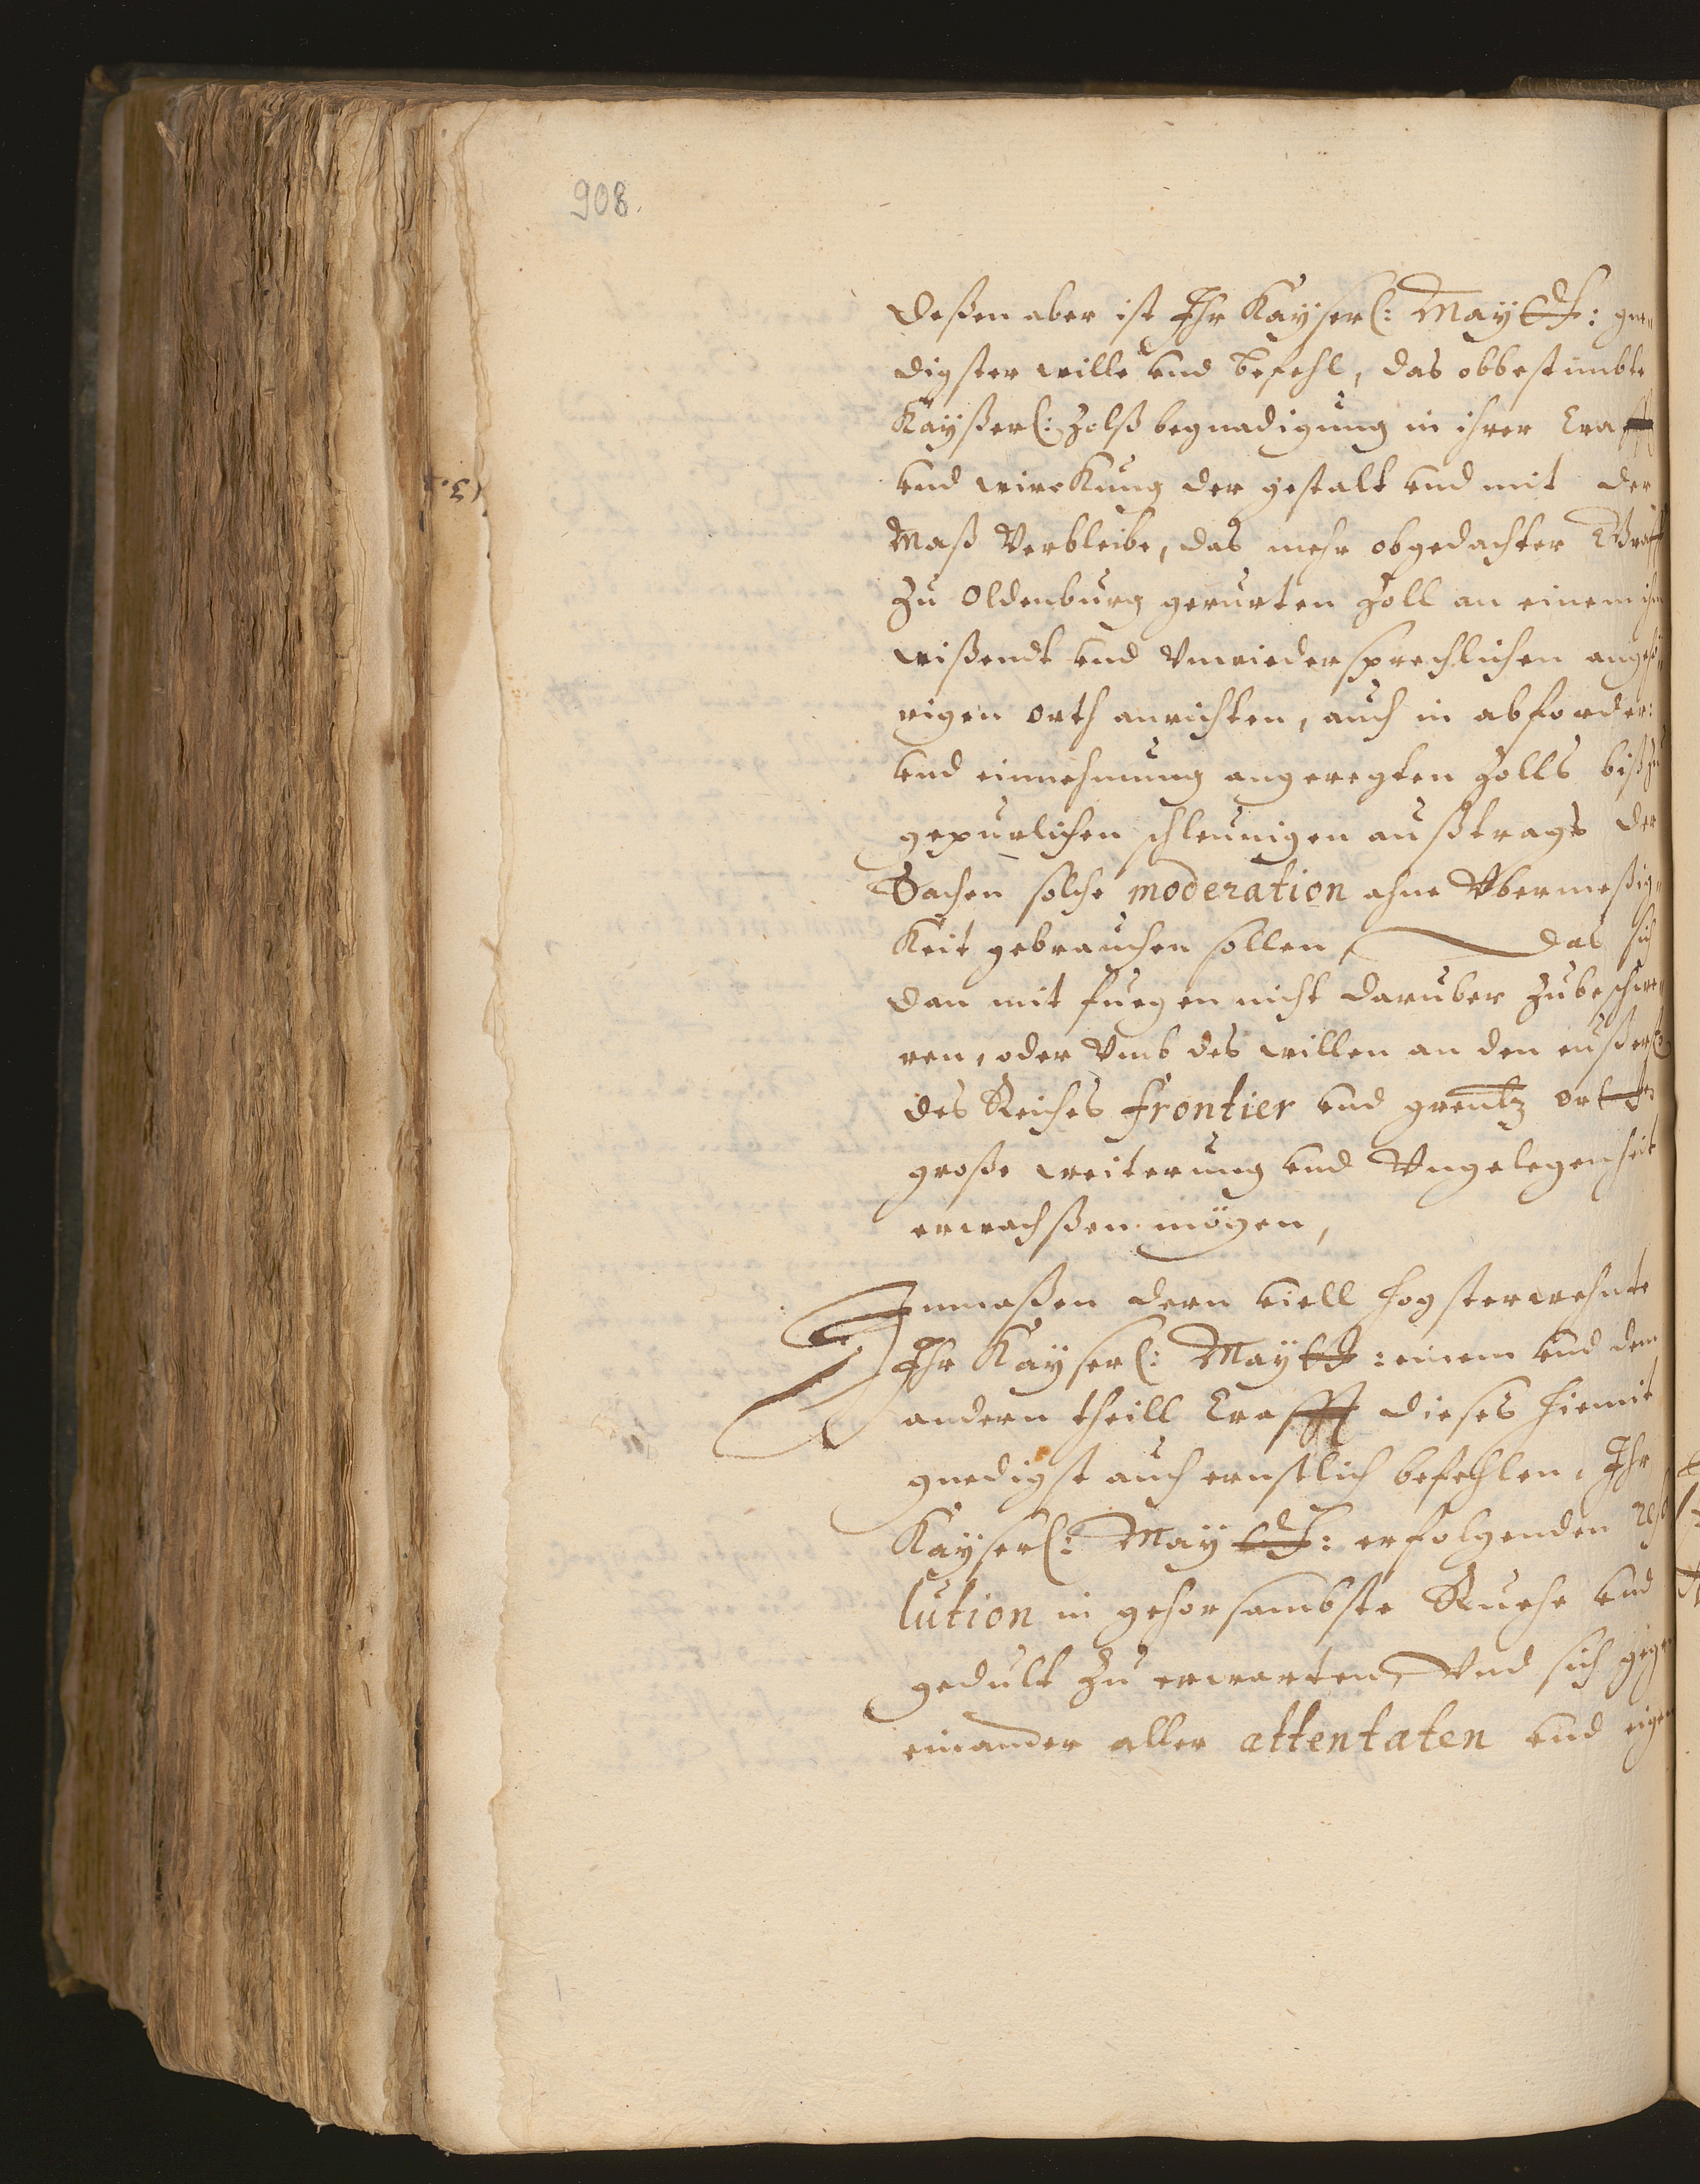 908.
deßen aber ist Ihr Kayserl: Maytt: gne„
digster wille vnd befehl, das obbestimbte
Kayßerl: Zolß begnadigung in ihrer Crafft
vnd wirckung der gestalt vnd mit der
Maß Verbleibe, das mehr obgedachter Graff
Zu Oldenburg gerurten Zoll an einem ihm
wißendt vnd Vnwiedersprechlichen angehö„
rigen orth anrichten, auch in abforder:
vnd einnehmung angeregten Zolls biß zu
gepurlichen schleunigen außtrags der
Sachen solche moderation ahne Vbermeßig„
keit gebrauchen sollen, das sich
dan mit fuegen nicht daruber Zubeschwe„
ren, oder Vmb des willen an den eußerst
des Reiches frontier vnd grentz orten
große weiterung vnd Vngelegenheit
erwachßen mögen,
Inmaßen dern viell hogsterwehnte
Ihr Kayserl: Maytt: einem vnd dem
andern theill Crafft dieses hiemit
gnedigst auch ernstlich befehlen, Ihr
Kayserl: Maytt: erfolgenden reso
lution in gehorsambste Ruehe vnd
gedult Zu erwarten, Vnd sich gegen
einander aller attentaten vnd eigen